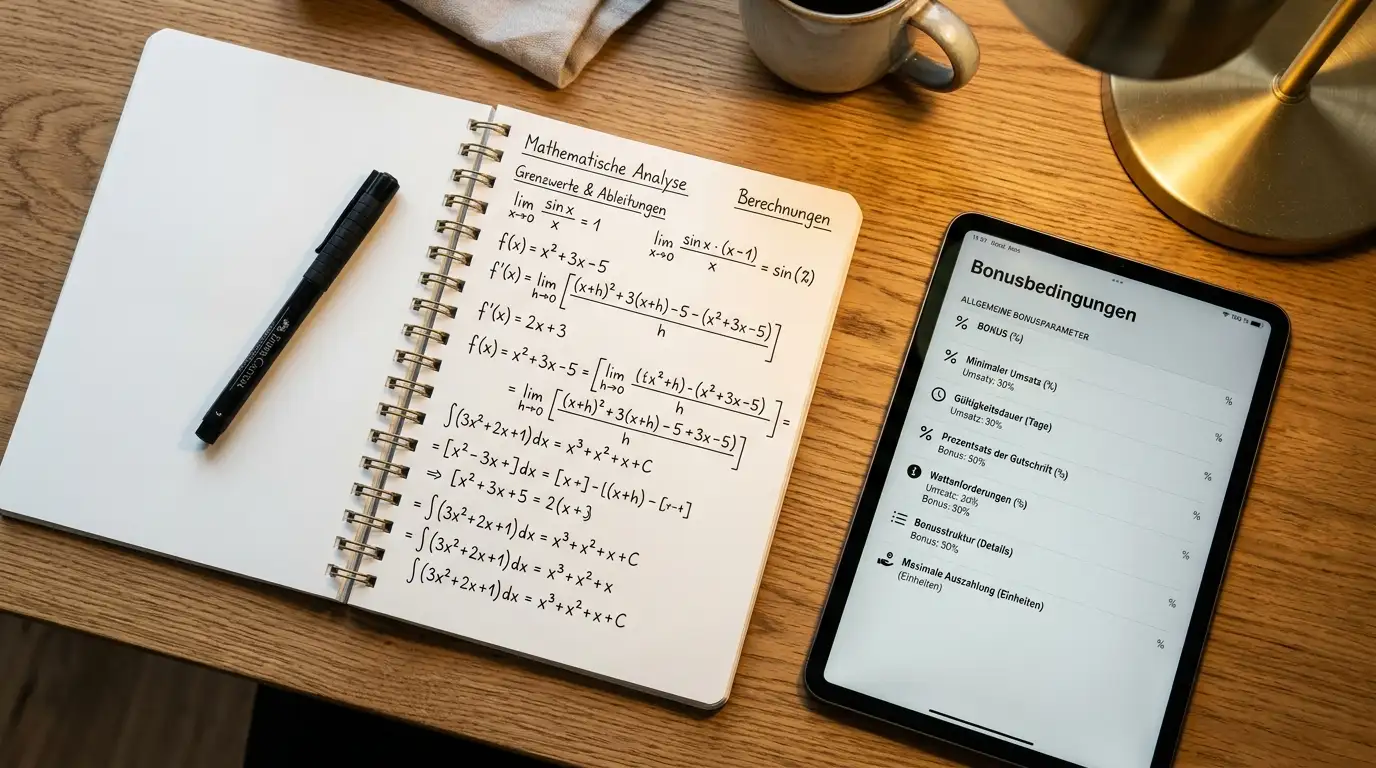 Mathematische Analyse
Grenzwerte & Ableitungen
lim x→0 sin x / x = 1
f(x) = x² + 3x − 5
f'(x) = lim h→0 [ (x+h)² + 3(x+h) − 5 − (x² + 3x − 5) / h ]
f'(x) = 2x + 3
f(x) = x² + 3x − 5 = [ lim h→0 (tx² + h) − (x² + 3x − 5) / h ] =
= lim h→0 [ (x+h)² + 3(x+h) − 5 + 3x − 5) / h ]
∫(3x² + 2x + 1) dx = x³ + x² + x + C
= [x² − 3x + ] dx = [x + ] − [(x+h) −
⇒ [x² + 3x + 5 = 2(x +
= ∫(3x² + 2x + 1) dx = x³ + x² + x + C
= ∫(3x² + 2x + 1) dx = x³ + x² + x
∫(3x² + 2x + 1) dx = x³ + x² + x + C
Berechnungen
lim x→0 sin x · (x − 1) / x = sin(
Bonusbedingungen
ALLGEMEINE BONUSPARAMETER
% BONUS (%)
% Minimaler Umsatz (%)
Umsaty: 30%
%
Gültigkeitsdauer (Tage)
Umsatz: 30%
%
% Prezentsats der Gutschrift
Bonus: 50%
%
Wattanforderungen
%
Bonus: 30%
Bonusstruktur (Details)
Bonus: 50%
%
Auszahlung (Einheiten)
(Einheiten)
%
%